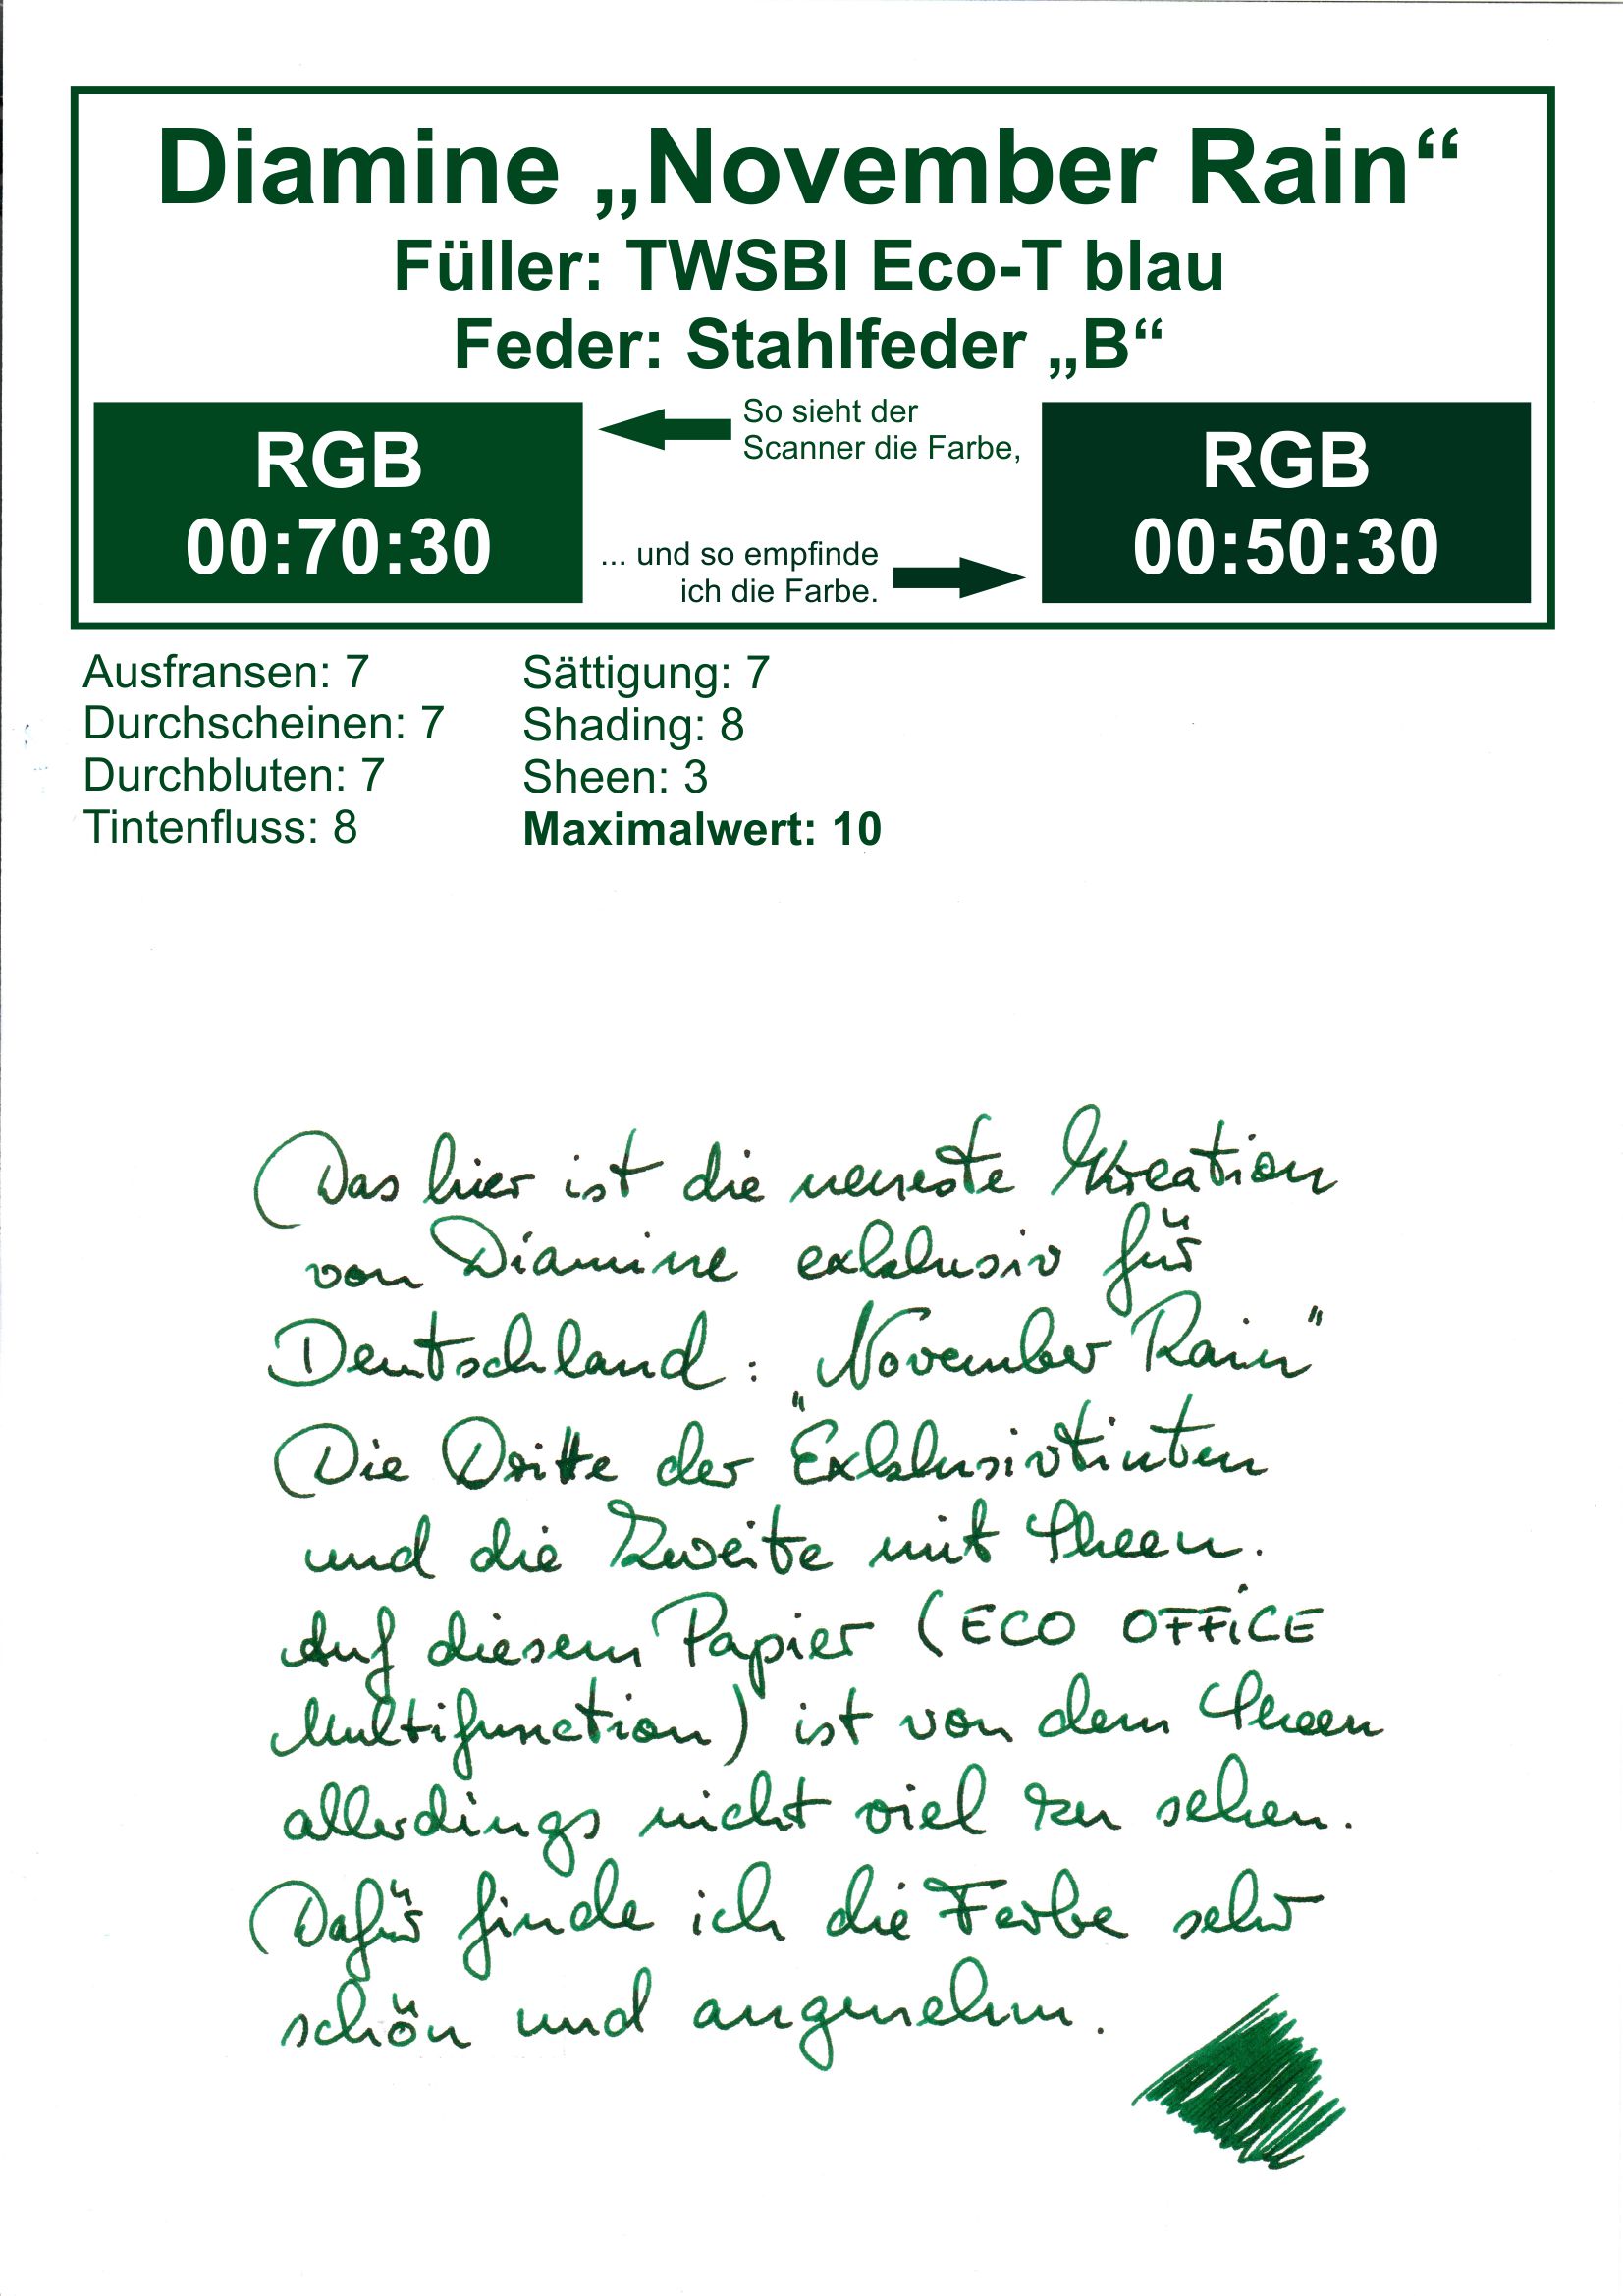 Diamine „November Rain“
Füller: TWSBI Eco-T blau
Feder: Stahlfeder „B“
RGB
00:70:30
So sieht der
Scanner die Farbe,
... und so empfinde
ich die Farbe.
RGB
00:50:30
Ausfransen: 7
Durchscheinen: 7
Durchbluten: 7
Tintenfluss: 8
Sättigung: 7
Shading: 8
Sheen: 3
Maximalwert: 10
Das hier ist die neueste Kreation
von Diamine exklusiv für
Deutschland: „November Rain“
Die Dritte der Exklusivtinten
und die Zweite mit Sheen.
Auf diesem Papier (ECO OFFiCE
Multifunction) ist von dem Sheen
allerdings nicht viel zu sehen.
Dafür finde ich die Farbe sehr
schön und angenehm.